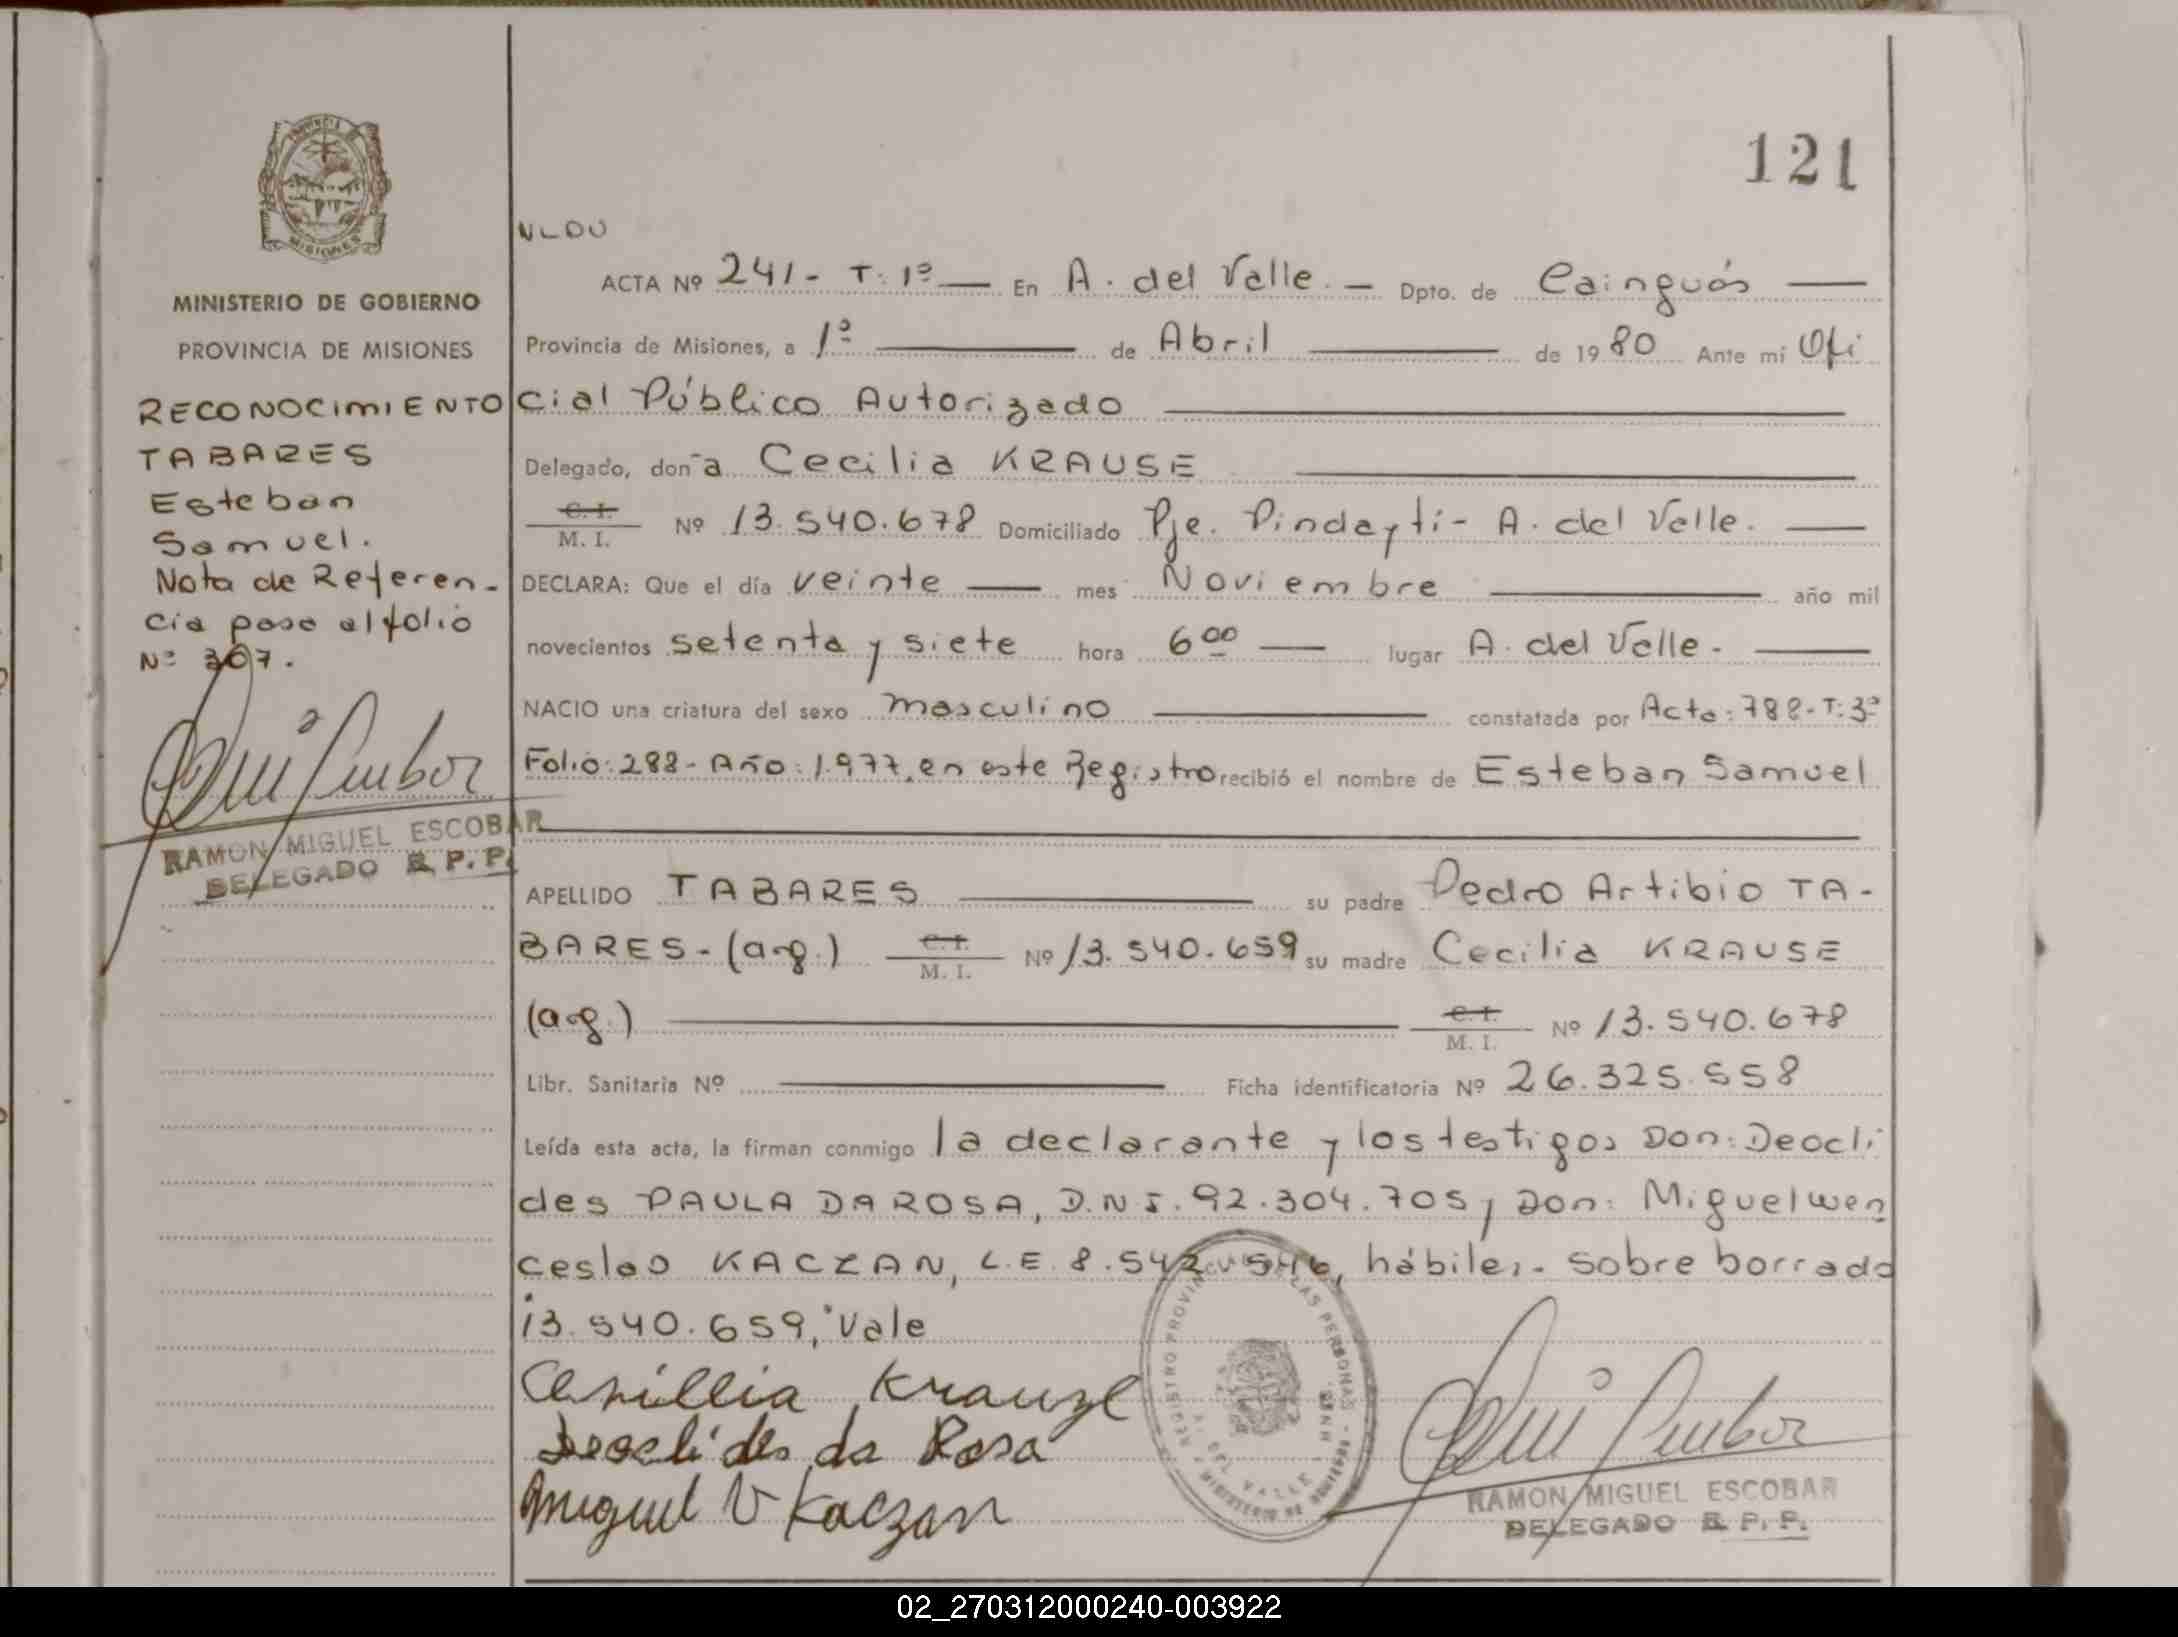 121
PROVINCIA DE
MISIONES
MINISTERIO DE GOBIERNO
PROVINCIA DE MISIONES
RECONOCIMIENTO
TABARES
Esteban
Samuel.
Nota de Referen-
cia pasa al folio
Nº 307.
RAMON MIGUEL ESCOBAR
DELEGADO R. P. P.
NLDU
ACTA Nº 241- T: 1º En A. del Valle. Dpto. de Cainguás
Provincia de Misiones, a 1º de Abril de 1980 Ante mi Ofi
cial Público Autorizado
Delegado, donª Cecilia KRAUSE
C. I. M. I. Nº 13.540.678 Domiciliado Pje. Pindaytí- A. del Valle.
DECLARA: Que el día veinte mes Noviembre año mil
novecientos setenta y siete hora 6 00 lugar A. del Valle.
NACIO una criatura del sexo masculino constatada por Acta: 788-T:3º
Folio: 288- Año: 1.977, en este Registro recibió el nombre de Esteban Samuel
APELLIDO TABARES su padre Pedro Artibio TA-
BARES-(arg.) C. I. M. I. Nº 13.540.659 su madre Cecilia KRAUSE
(arg.) C. I. M. I. Nº 13.540.678
Libr. Sanitaria Nº Ficha identificatoria Nº 26.325.558
Leída esta acta, la firman conmigo la declarante y los testigos Don: Deocli
des PAULA DA ROSA, D.N.I. 92.304.705 y Don: Miguel Wen
ceslao KACZAN, L.E. 8.542.546, hábiles.- Sobre borrado
13.540.659, Vale
Cesillia Krauze
Deoclides da Rosa
Miguel V Kaczan
RAMON MIGUEL ESCOBAR
DELEGADO R. P. P.
02_270312000240-003922